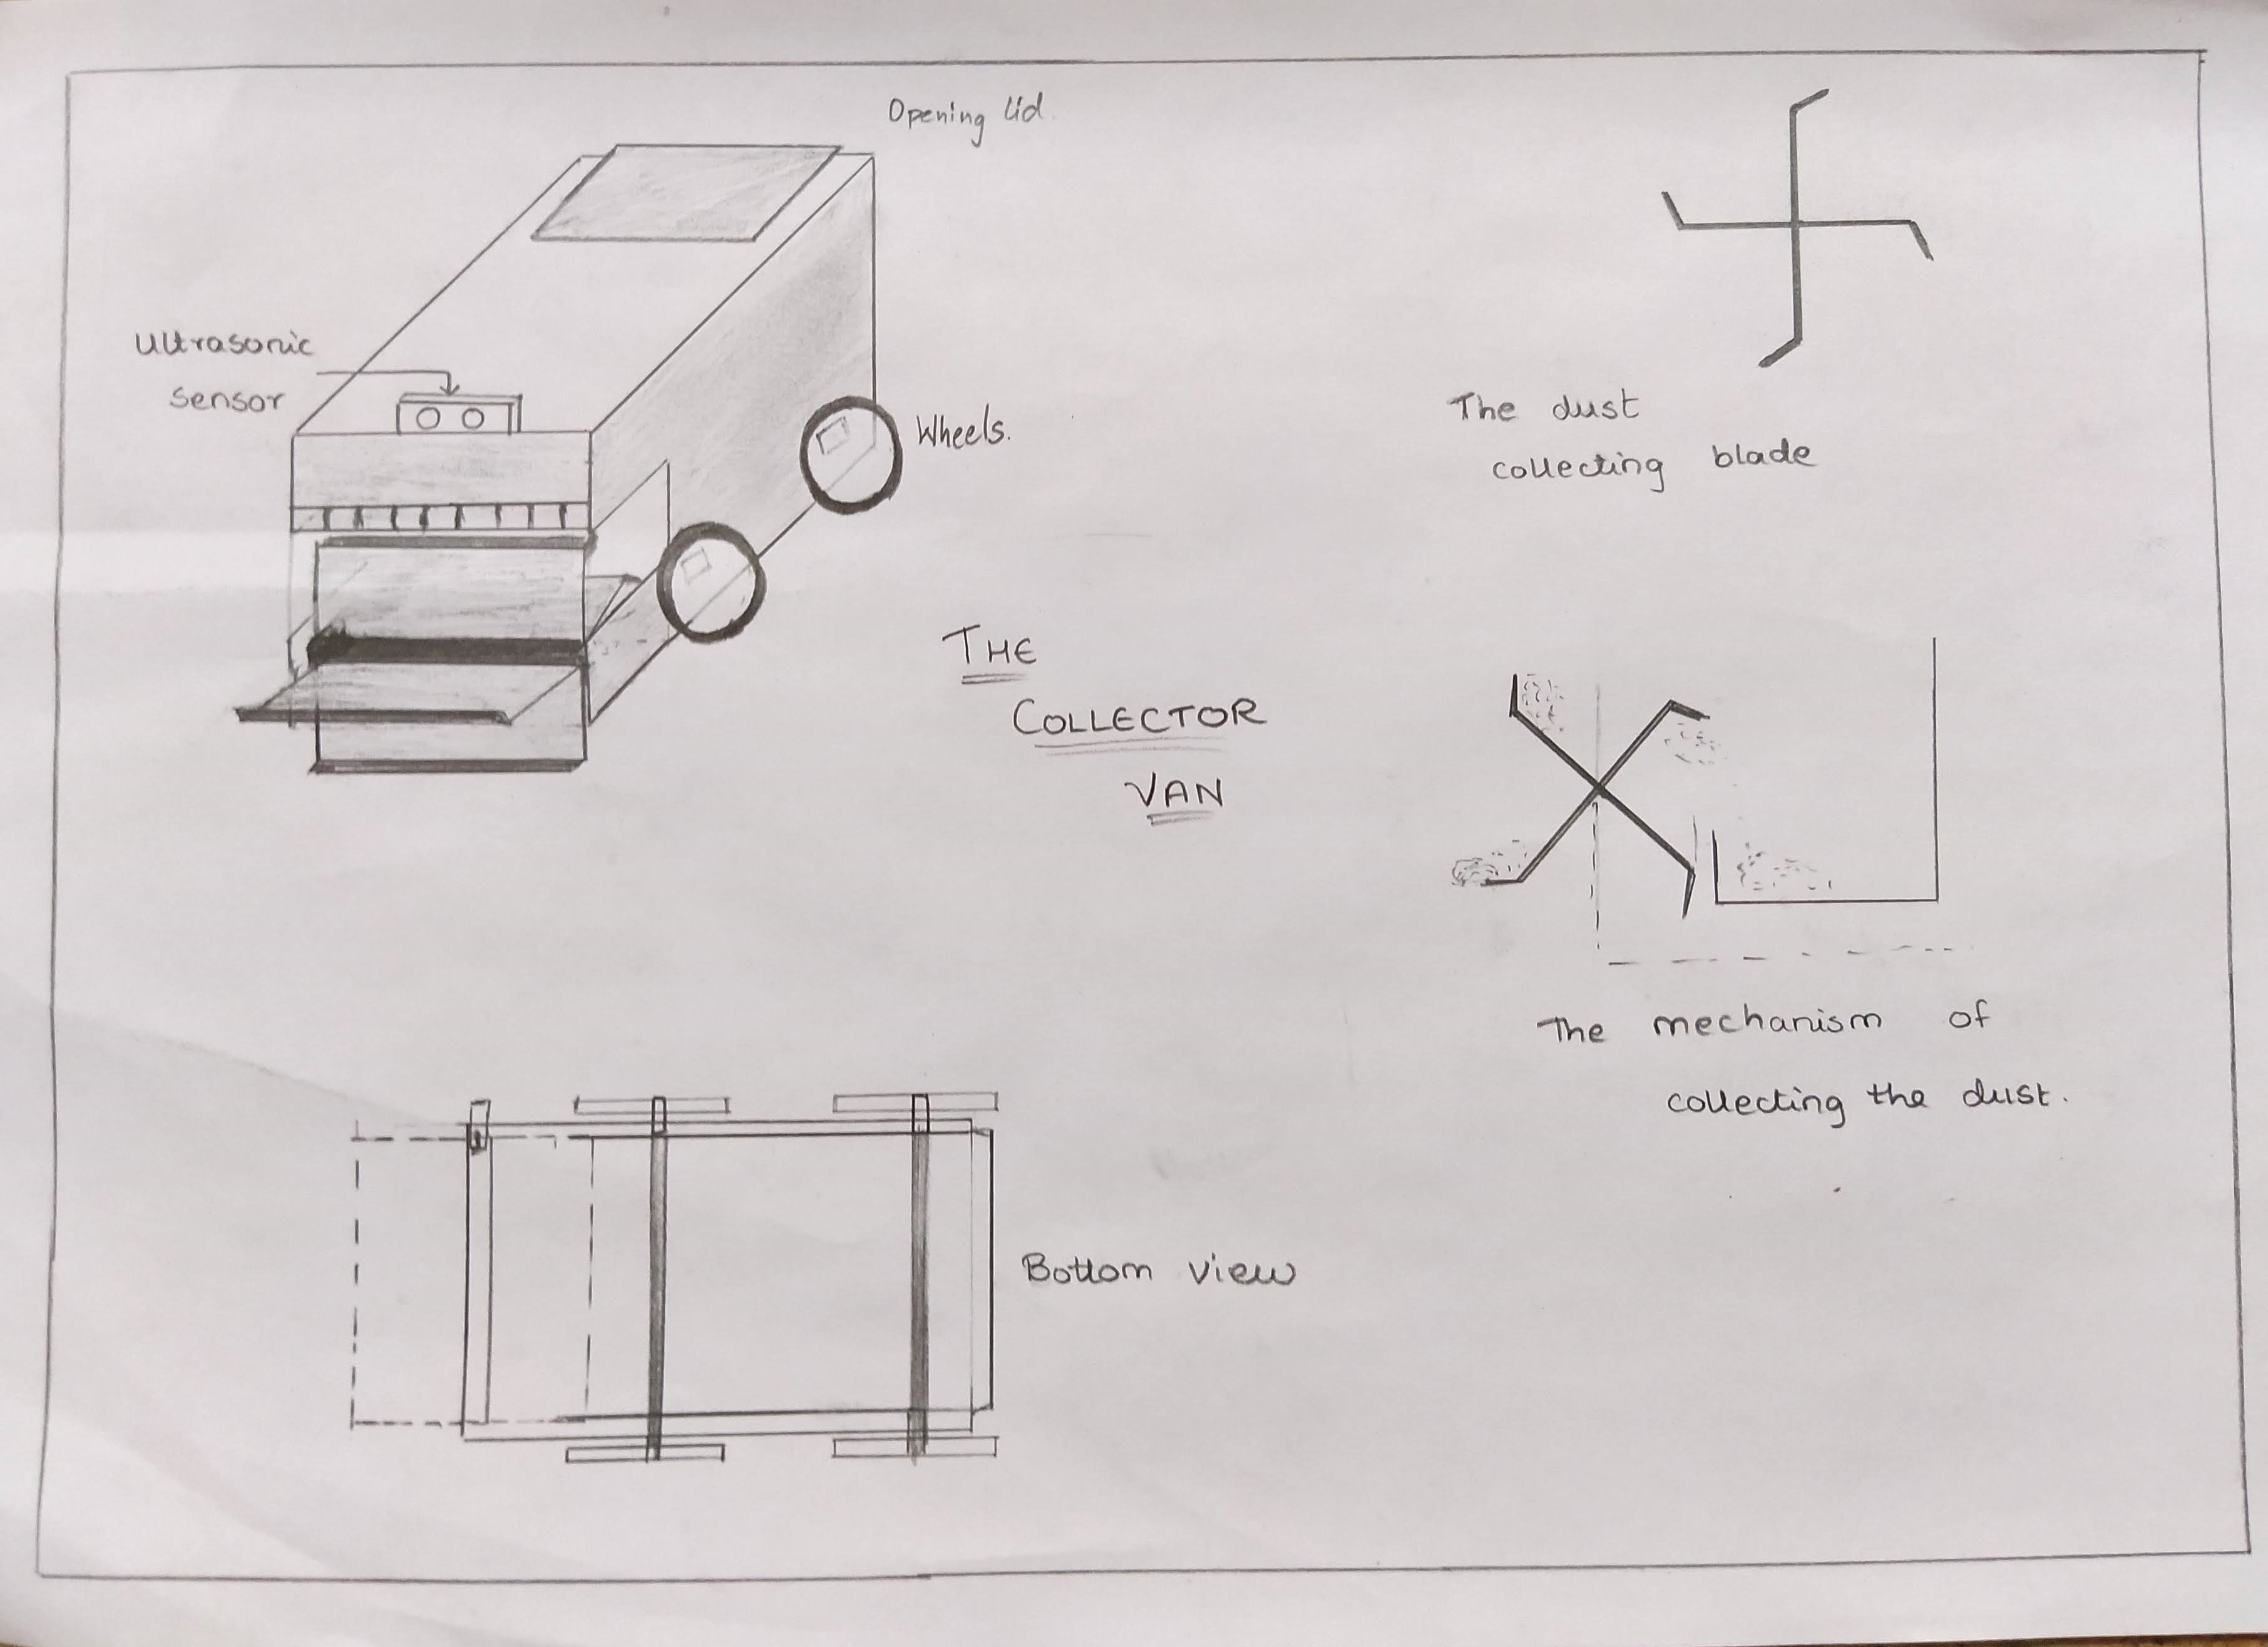 Opening lid.
Ultrasonic
sensor
Wheels.
THE
COLLECTOR
VAN
The dust
collecting blade
The mechanism of
collecting the dust.
Bottom view